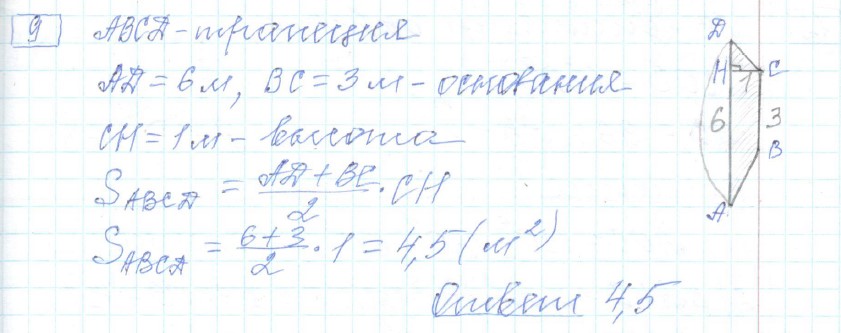 9 ABCD - трапеция
AD = 6 м, BC = 3 м - основания
CH = 1 м - высота
S_ABCD = (AD + BC)/2 · CH
S_ABCD = (6 + 3)/2 · 1 = 4,5 (м²)
Ответ 4,5
D
H 1 C
6 3
B
A